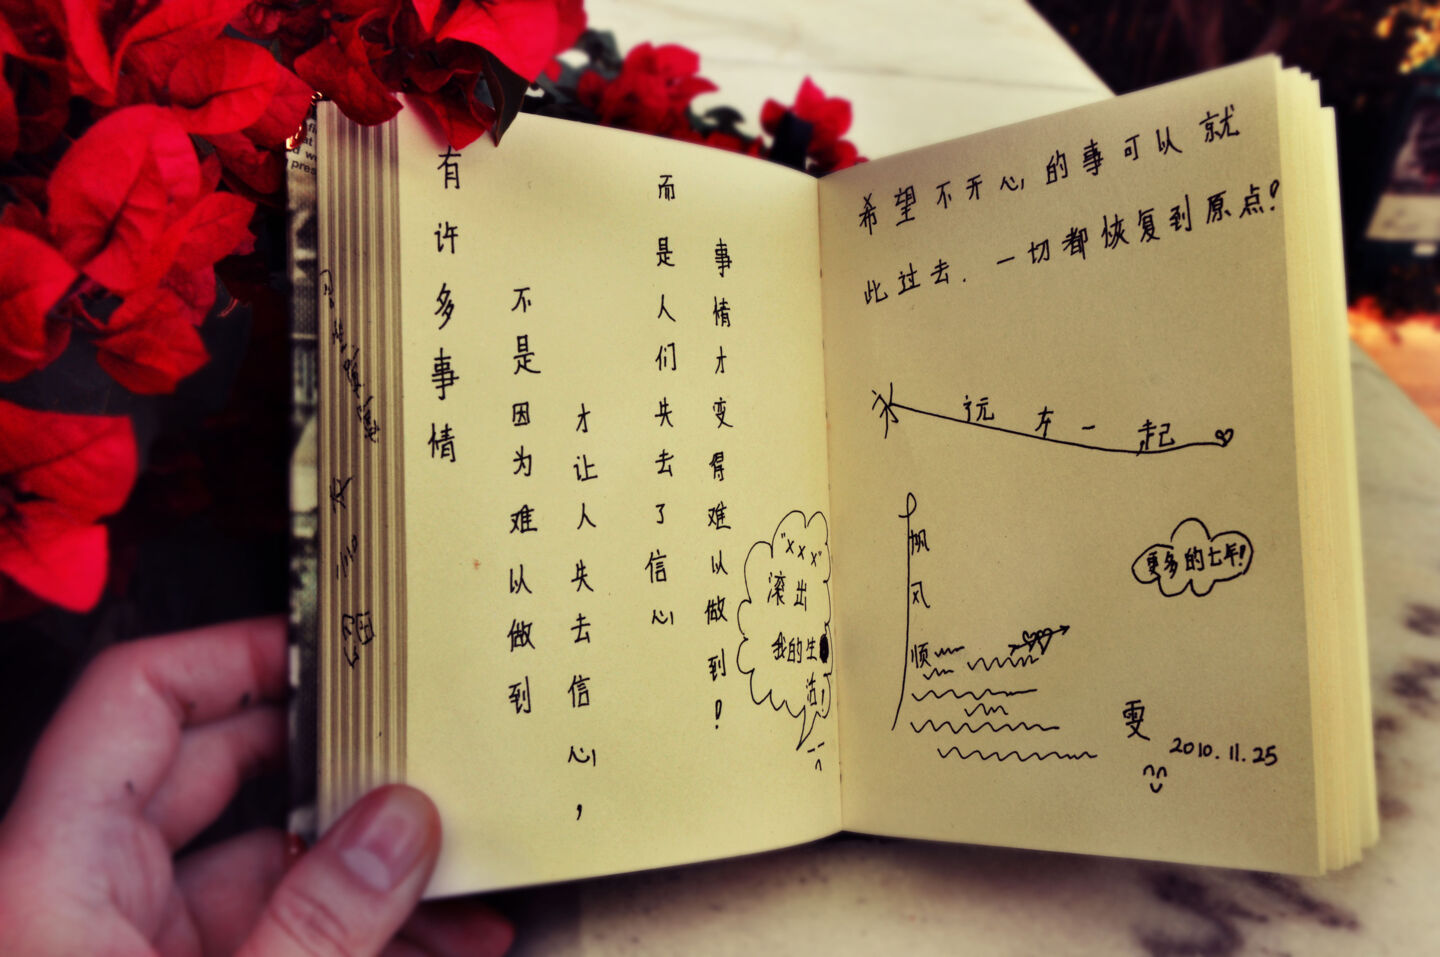 有许多事情
不是因为难以做到
才让人失去信心，
而是人们失去了信心
事情才变得难以做到！
"×××"
滚出
我的生
活！
希望不开心的事可以就
此过去．一切都恢复到原点！
永远在一起
帆风顺
更多的七年！
雯
2010.11.25